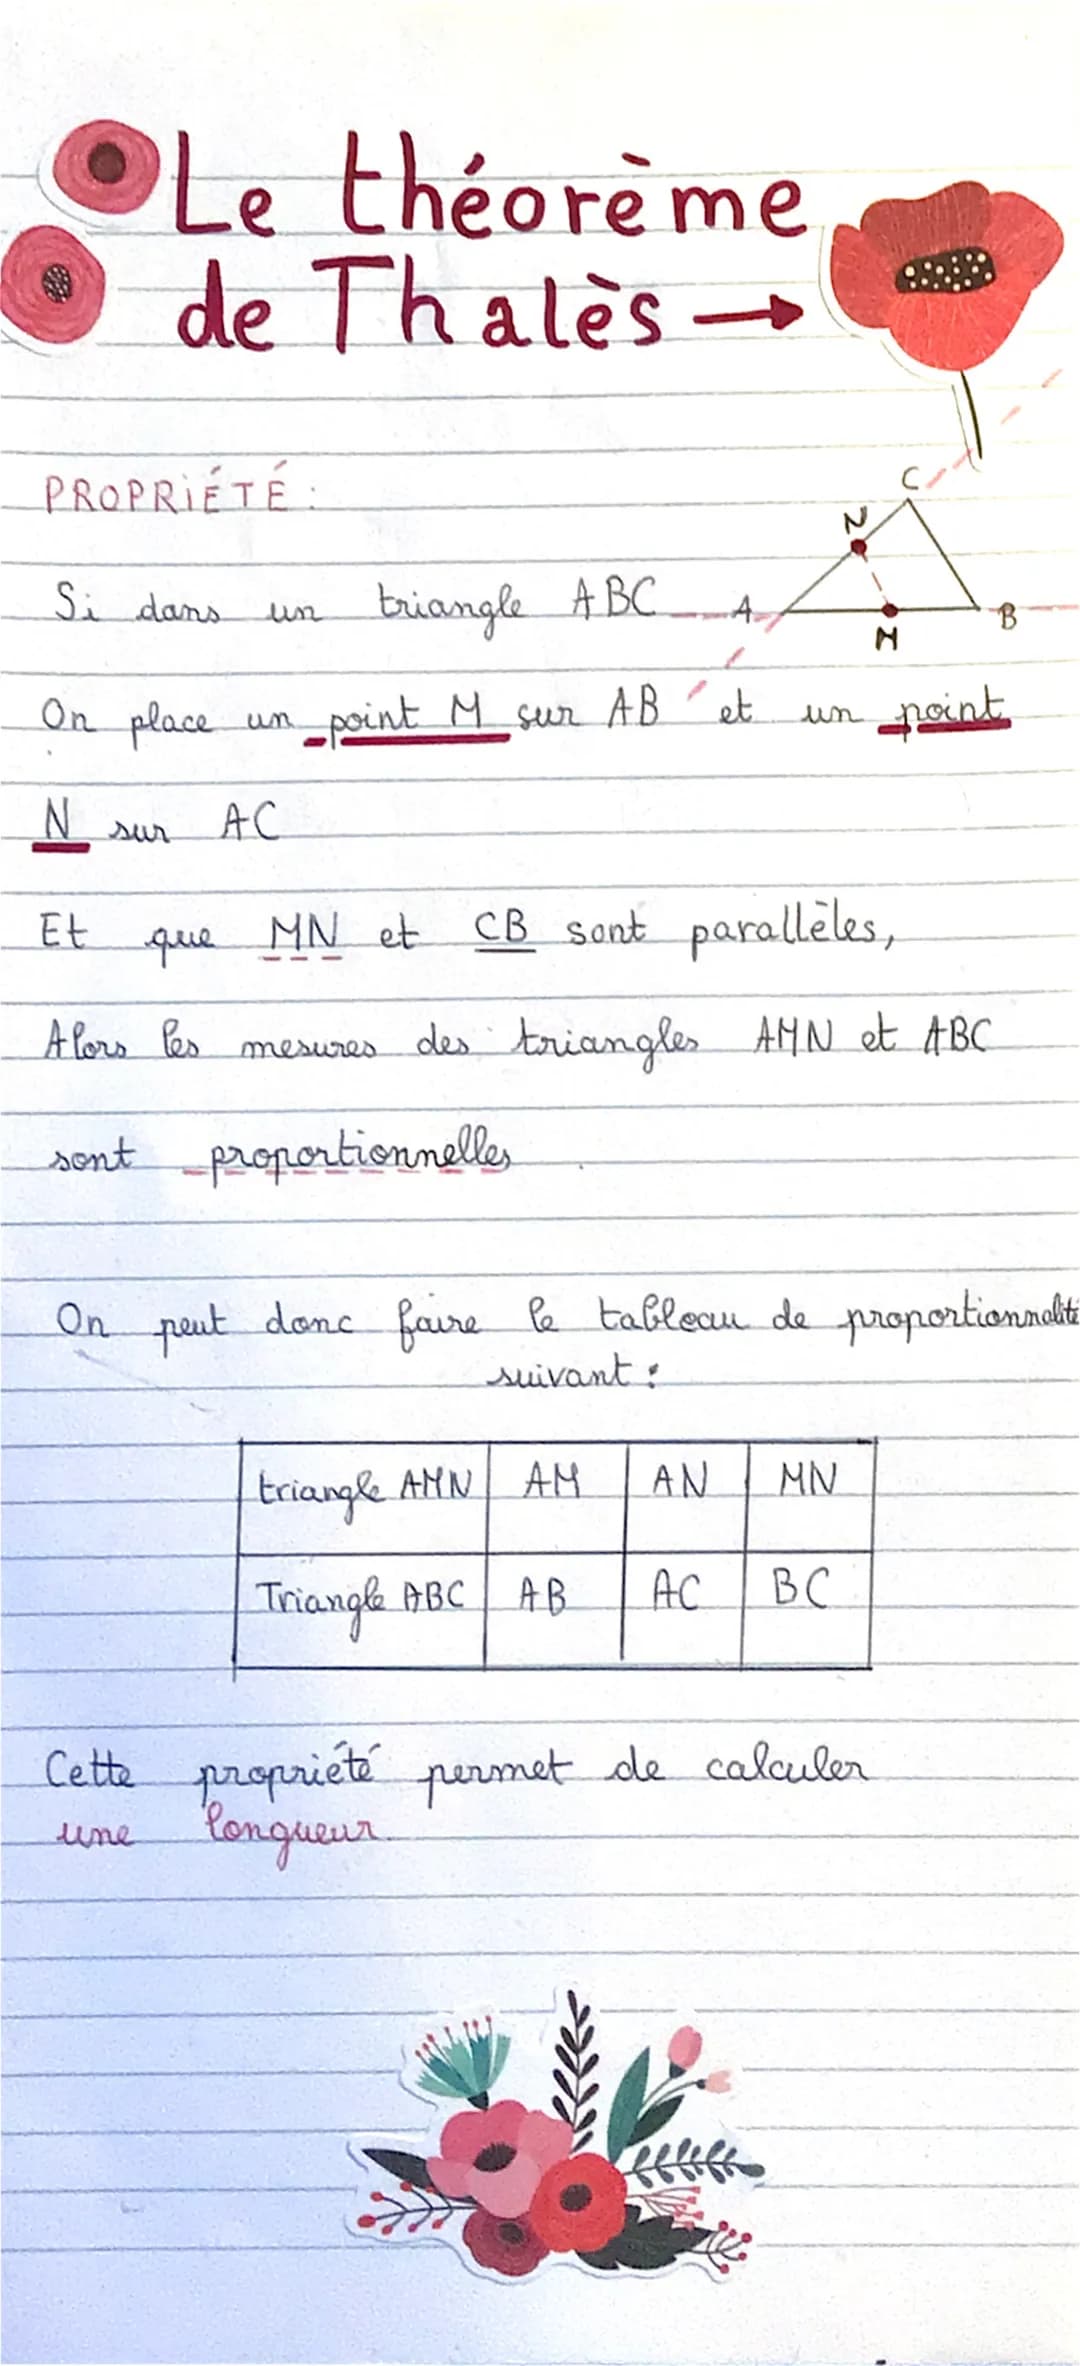 Le théorème
de Thalès →
PROPRIÉTÉ :
C
N
Si dans un triangle ABC
A
B
M
On place un point M sur AB et un point
N sur AC
Et que MN et CB sont parallèles,
Alors les mesures des triangles AMN et ABC
sont proportionnelles
On peut donc faire le tableau de proportionnalité
suivant :
triangle AMN AM AN MN
Triangle ABC AB AC BC
Cette propriété permet de calculer
une longueur.